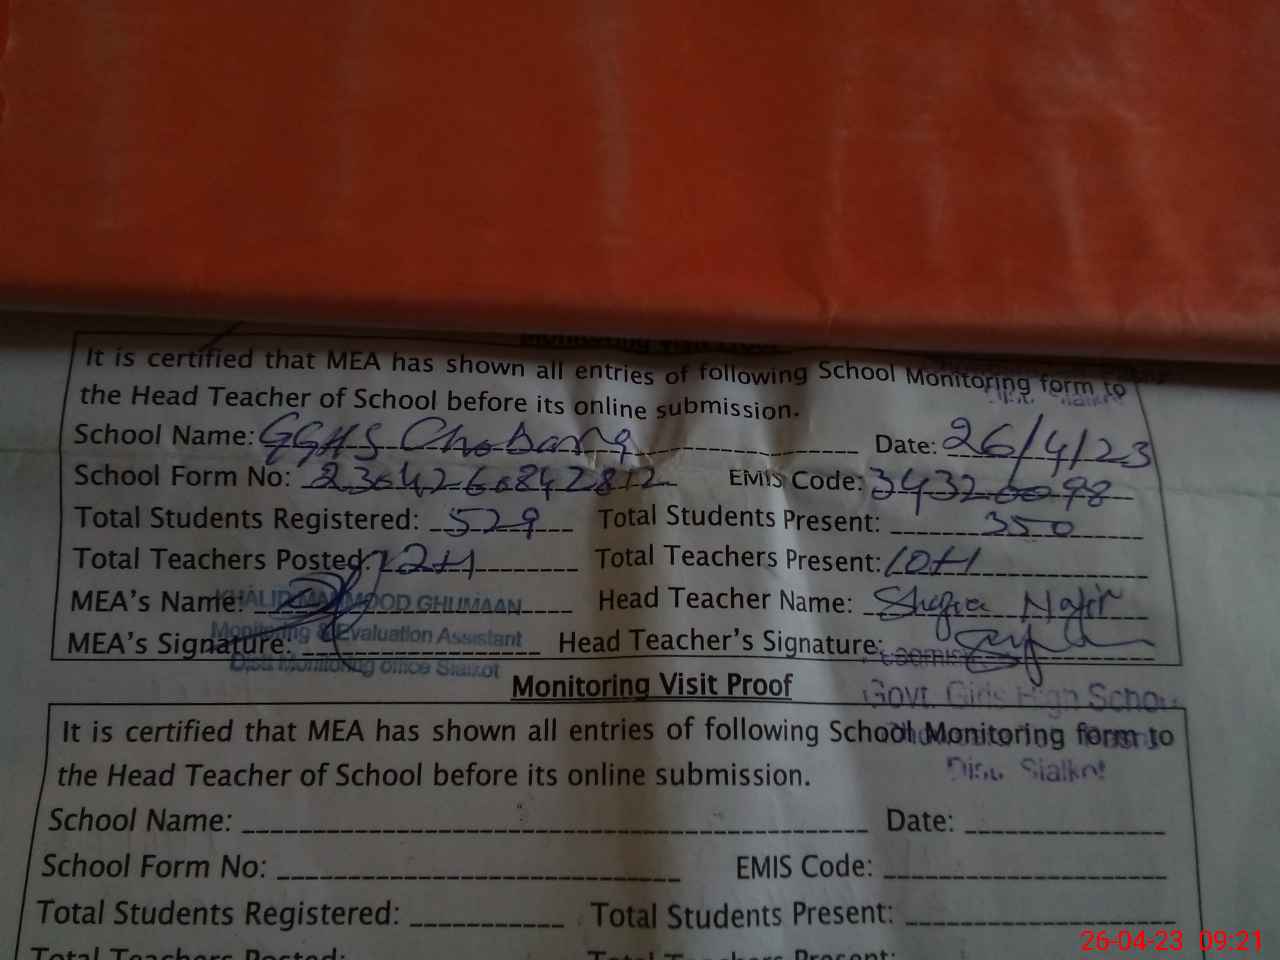 It is certified that MEA has shown all entries of following School Monitoring form to
the Head Teacher of School before its online submission.
School Name: GGHS Chobara Date: 26/4/23
School Form No: 2304260842812 EMIS Code: 34320098
Total Students Registered: 529 Total Students Present: 350
Total Teachers Posted: 12+1 Total Teachers Present: 10+1
MEA's Name: KHALID MAHMOOD GHUMAAN Head Teacher Name: Nazir
Monitoring & Evaluation Assistant
MEA's Signature: Head Teacher's Signature:
Distt Monitoring office Sialkot
Monitoring Visit Proof
Govt. Girls High School
It is certified that MEA has shown all entries of following School Monitoring form to
Distt. Sialkot
the Head Teacher of School before its online submission.
School Name: Date:
School Form No: EMIS Code:
Total Students Registered: Total Students Present:
Total Teachers Posted: Total Teachers Present:
26-04-23 09:21